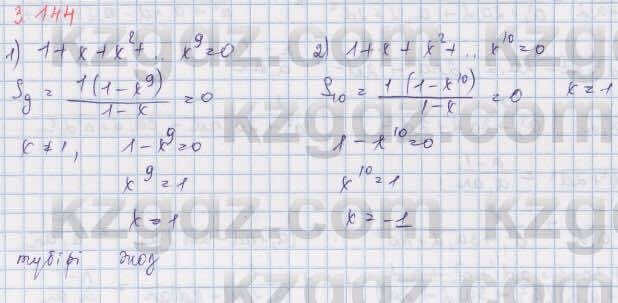 3.144
1) 1+x+x²+.. x⁹=0
S₉ = 1(1-x⁹)/(1-x) = 0
x≠1, 1-x⁹=0
x⁹=1
x=1
түбірі жоқ
2) 1+x+x²+.. x¹⁰=0
S₁₀ = 1(1-x¹⁰)/(1-x) = 0 x=1
1-x¹⁰=0
x¹⁰=1
x=-1
kzgdz.com